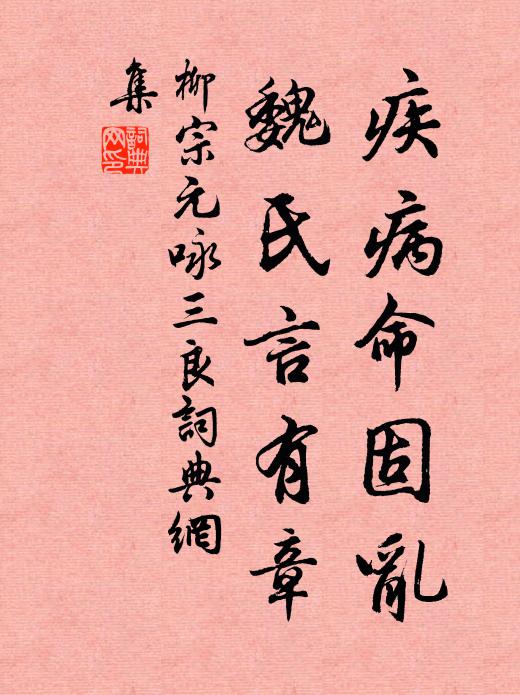 疾病命固亂
魏氏言有章
柳宗元咏三良詞典網
集
詞典
网印